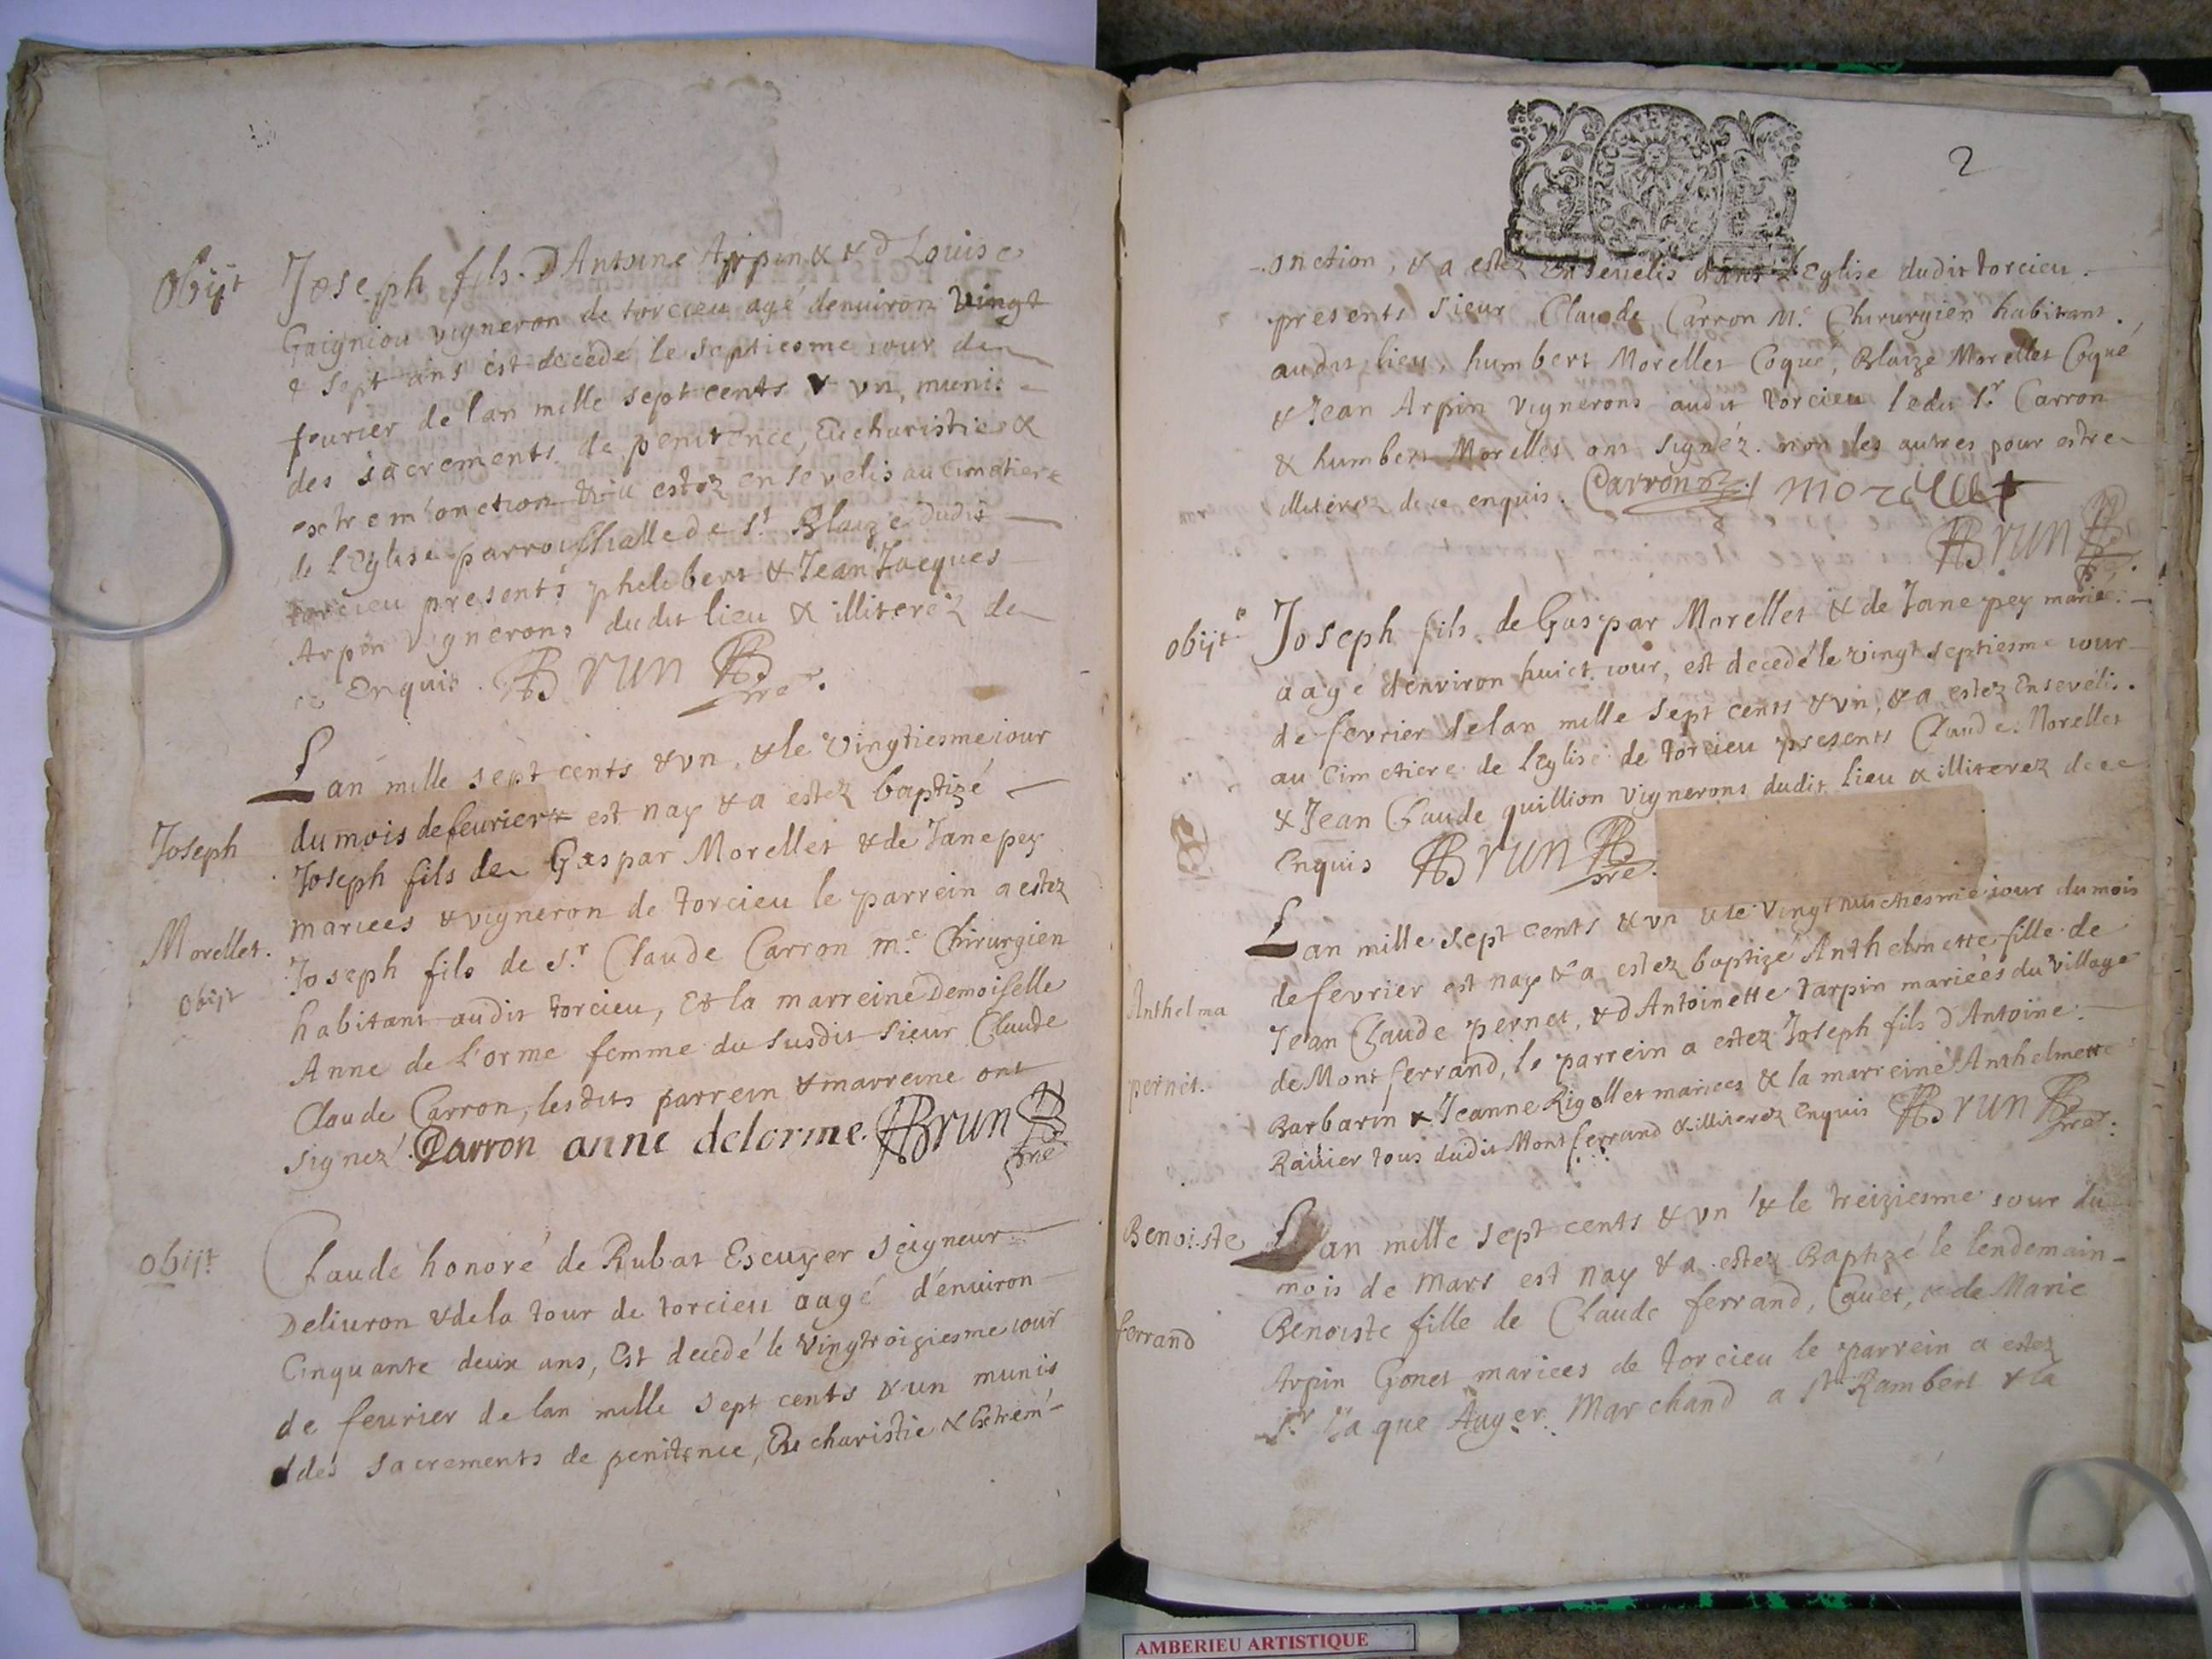 Obijt
Joseph fils D Antoine Arpin & & d Louise
Gaigniou vigneron de torcieu agé denuiron vingt
& sept ans est decedé le septiesme iour de
feurier de lan mille sept cents & vn, munis
des sacrements de penitence, Eucharistie &
extrem'onction & a estez ensevelis au Cimetiere
de l'Eglise parroischialle de St Blaize dudit
torcieu presents phelibert & Jean Jacques
Arpin vignerons dudit lieu & illiterez de
ce Enquis. Brun pre.
Joseph
Morellet.
obijt
Lan mille sept cents & vn, & le vingtiesme iour
du mois de feurier est nay & a estez baptizé
Joseph fils de Gaspar Morellet & de Jane pey
mariees & vigneron de torcieu le parrein a estez
Joseph fils de Sr Claude Carron me Chirurgien
habitant audit torcieu, Et la marreine Demoiselle
Anne de L'orme femme du susdit sieur Claude
Claude Carron, lesdits parrein & marreine ont
signez. Carron anne delorme. Brun pre
obijt
Claude honoré de Rubat Escuyer seigneur
Deliuron & de la tour de torcieu aagé d'énuiron
Cinquante deux ans, Est decedé le vingtroiziesme iour
de feurier de lan mille sept cents & un munis
des sacrements de penitence, Eucharistie & Extrem'-
2
-onction, & a estez Ensevelis dans l'Eglise dudit torcieu.
presents sieur Claude Carron Me Chirurgien habitant
audit lieu, humbert Morellet Coque, Blaize Morellet Coqué
& Jean Arpin vignerons audit torcieu ledit Sr Carron
& humbert Morellet ont signéz non les autres pour estre
illiterez de ce enquis. Carron morellet
Brun pre.
obijt
Joseph fils de Gaspar Morellet & de Jane pey marié.
aagé d'environ huict iour, est decedé le vingt septiesme iour
de fevrier de lan mille sept cents & vn, & a estez Ensevelis.
au Cimetiere de l'Eglise de torcieu presents Claude Morellet
& Jean Claude quillion vignerons dudit lieu & illiterez de ce
Enquis Brun pre.
Anthelma
pernet.
Lan mille sept cents & vn & le vingt huictiesme iour du mois
de fevrier est nay & a estez baptizé Anthelmette fille de
Jean Claude pernet, & d Antoinette tarpin mariées du village
de Mont ferrand, le parrein a estez Joseph fils d Antoine
Barbarin & Jeanne Rigollet mariees & la marreine Anthelmette
Rauier tous dudit Mont ferrand & illiterez Enquis Brun pre.
Benoiste
ferrand
Lan mille sept cents & vn & le treiziesme iour du
mois de Mars est nay & a estez Baptizé le lendemain
Benoiste fille de Claude ferrand, Cauet, & de Marie
Arpin Gonet mariees de torcieu le parrein a estez
Sr Jaque Auger Marchand a St Rambert & la
AMBERIEU ARTISTIQUE